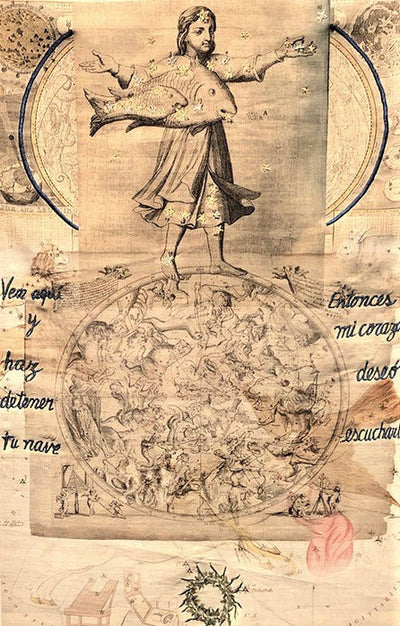 Ven aquí
y
haz
detener
tu nave
Entonces
mi corazó
deseó
escucharl